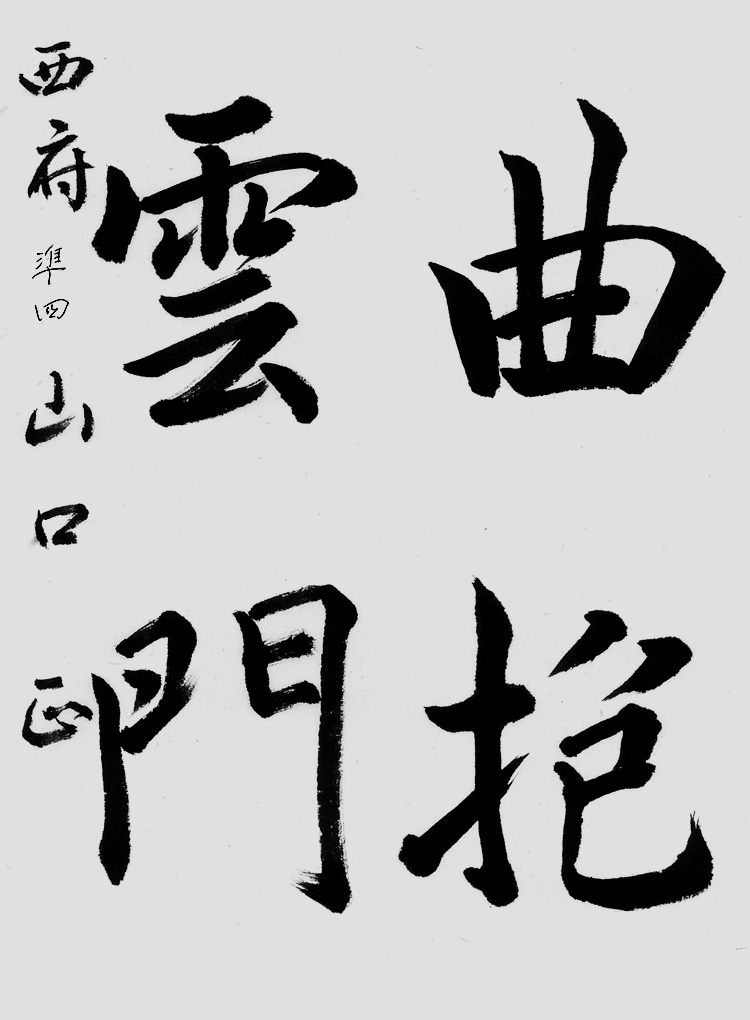 曲抱
雲門
西府 準四 山口 正